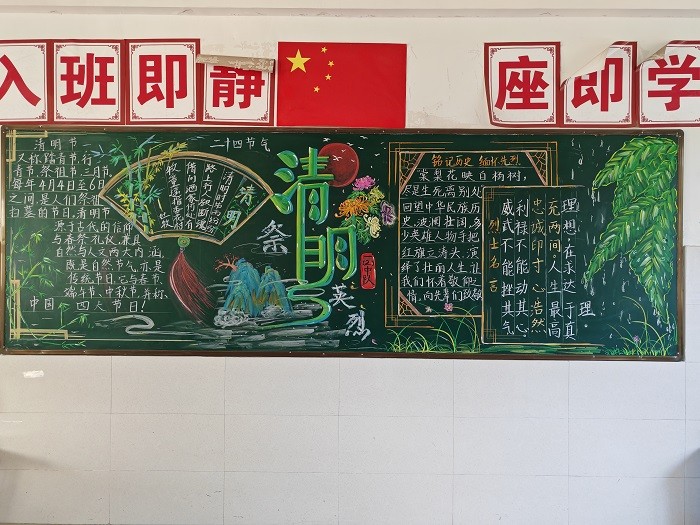 入班即静
座即学
清明节
又称踏青节、行
青节、祭祖节、三月节,
每年4月4日至6日
之间,是人们祭祖、
扫墓的节日,清明节
兼
自然与人文两大内涵,
既是自然节气,亦是
传统节日,它与春节、
端午节、中秋节并称
中国四大节日!
二十四节气
清明
清明时节雨纷纷
路上行人欲断魂
借问酒家何处有
牧童遥指杏花村
杜牧
清明节
祭
英烈
铭记历史 缅怀先烈
棠梨花映白杨树,
尽是生死离别处
回望中华民族历
史,波澜壮阔,多
少英雄人物手把
红旗立涛头,演
绎了壮丽人生,让
我们怀着敬仰之
情,向先辈们致敬
理想,在永达于真理。
充两间。人生最高
忠诚印寸心,浩然
利禄不能动其心。
威武不能挫其气,
烈士名言